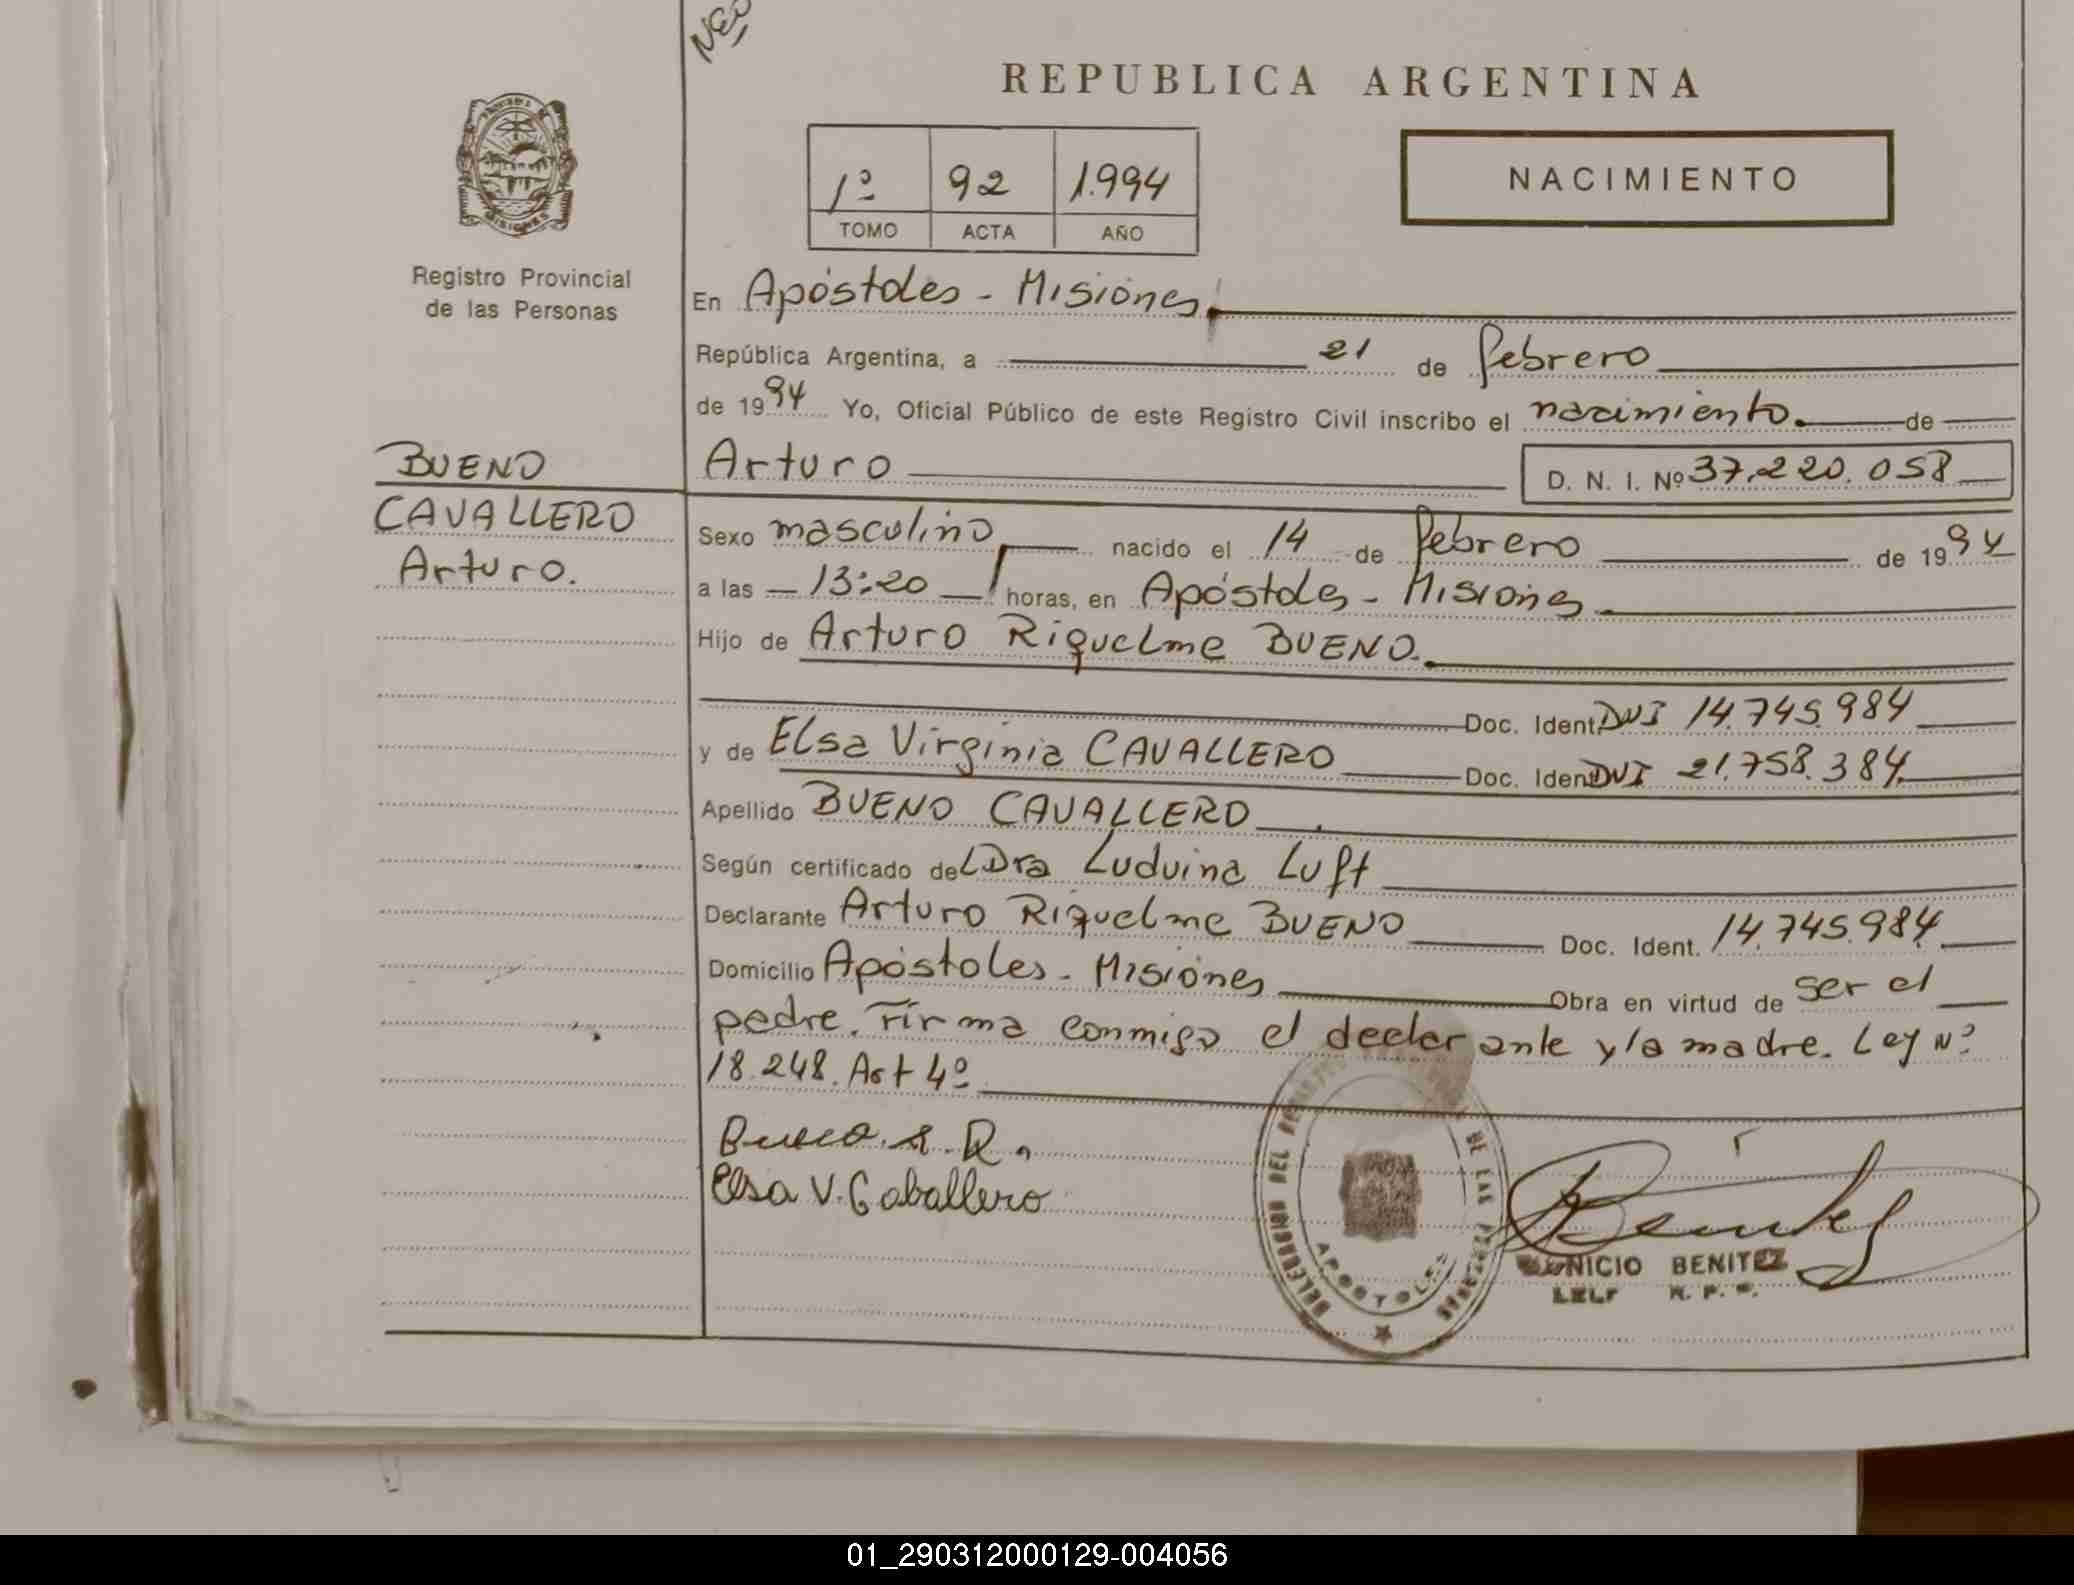 NEO
REPUBLICA ARGENTINA
1º 92 1.994
TOMO ACTA AÑO
NACIMIENTO
MISIONES
Registro Provincial
de las Personas
En Apóstoles - Misiones
República Argentina, a 21 de febrero
de 1994 Yo, Oficial Público de este Registro Civil inscribo el nacimiento. de
BUENO
CAVALLERO
Arturo.
Arturo D. N. I. Nº 37.220.058
Sexo masculino nacido el 14 de febrero de 1994
a las 13:20 horas, en Apóstoles - Misiones
Hijo de Arturo Riquelme BUENO.
Doc. Ident. DNI 14.745.984
y de Elsa Virginia CAVALLERO Doc. Ident. DNI 21.758.384
Apellido BUENO CAVALLERO
Según certificado de La Dra Luduina Luft
Declarante Arturo Riquelme BUENO Doc. Ident. 14.745.984
Domicilio Apóstoles - Misiones Obra en virtud de ser el
padre. Firma conmigo el declarante y la madre. Ley Nº
18.248. Art 4º
Bueno. A. R.
Elsa V. Caballero
DELEGACION DEL REGISTRO DE LAS PERSONAS
APOSTOLES
Benitez
BENITEZ
R. P. P.
01_290312000129-004056